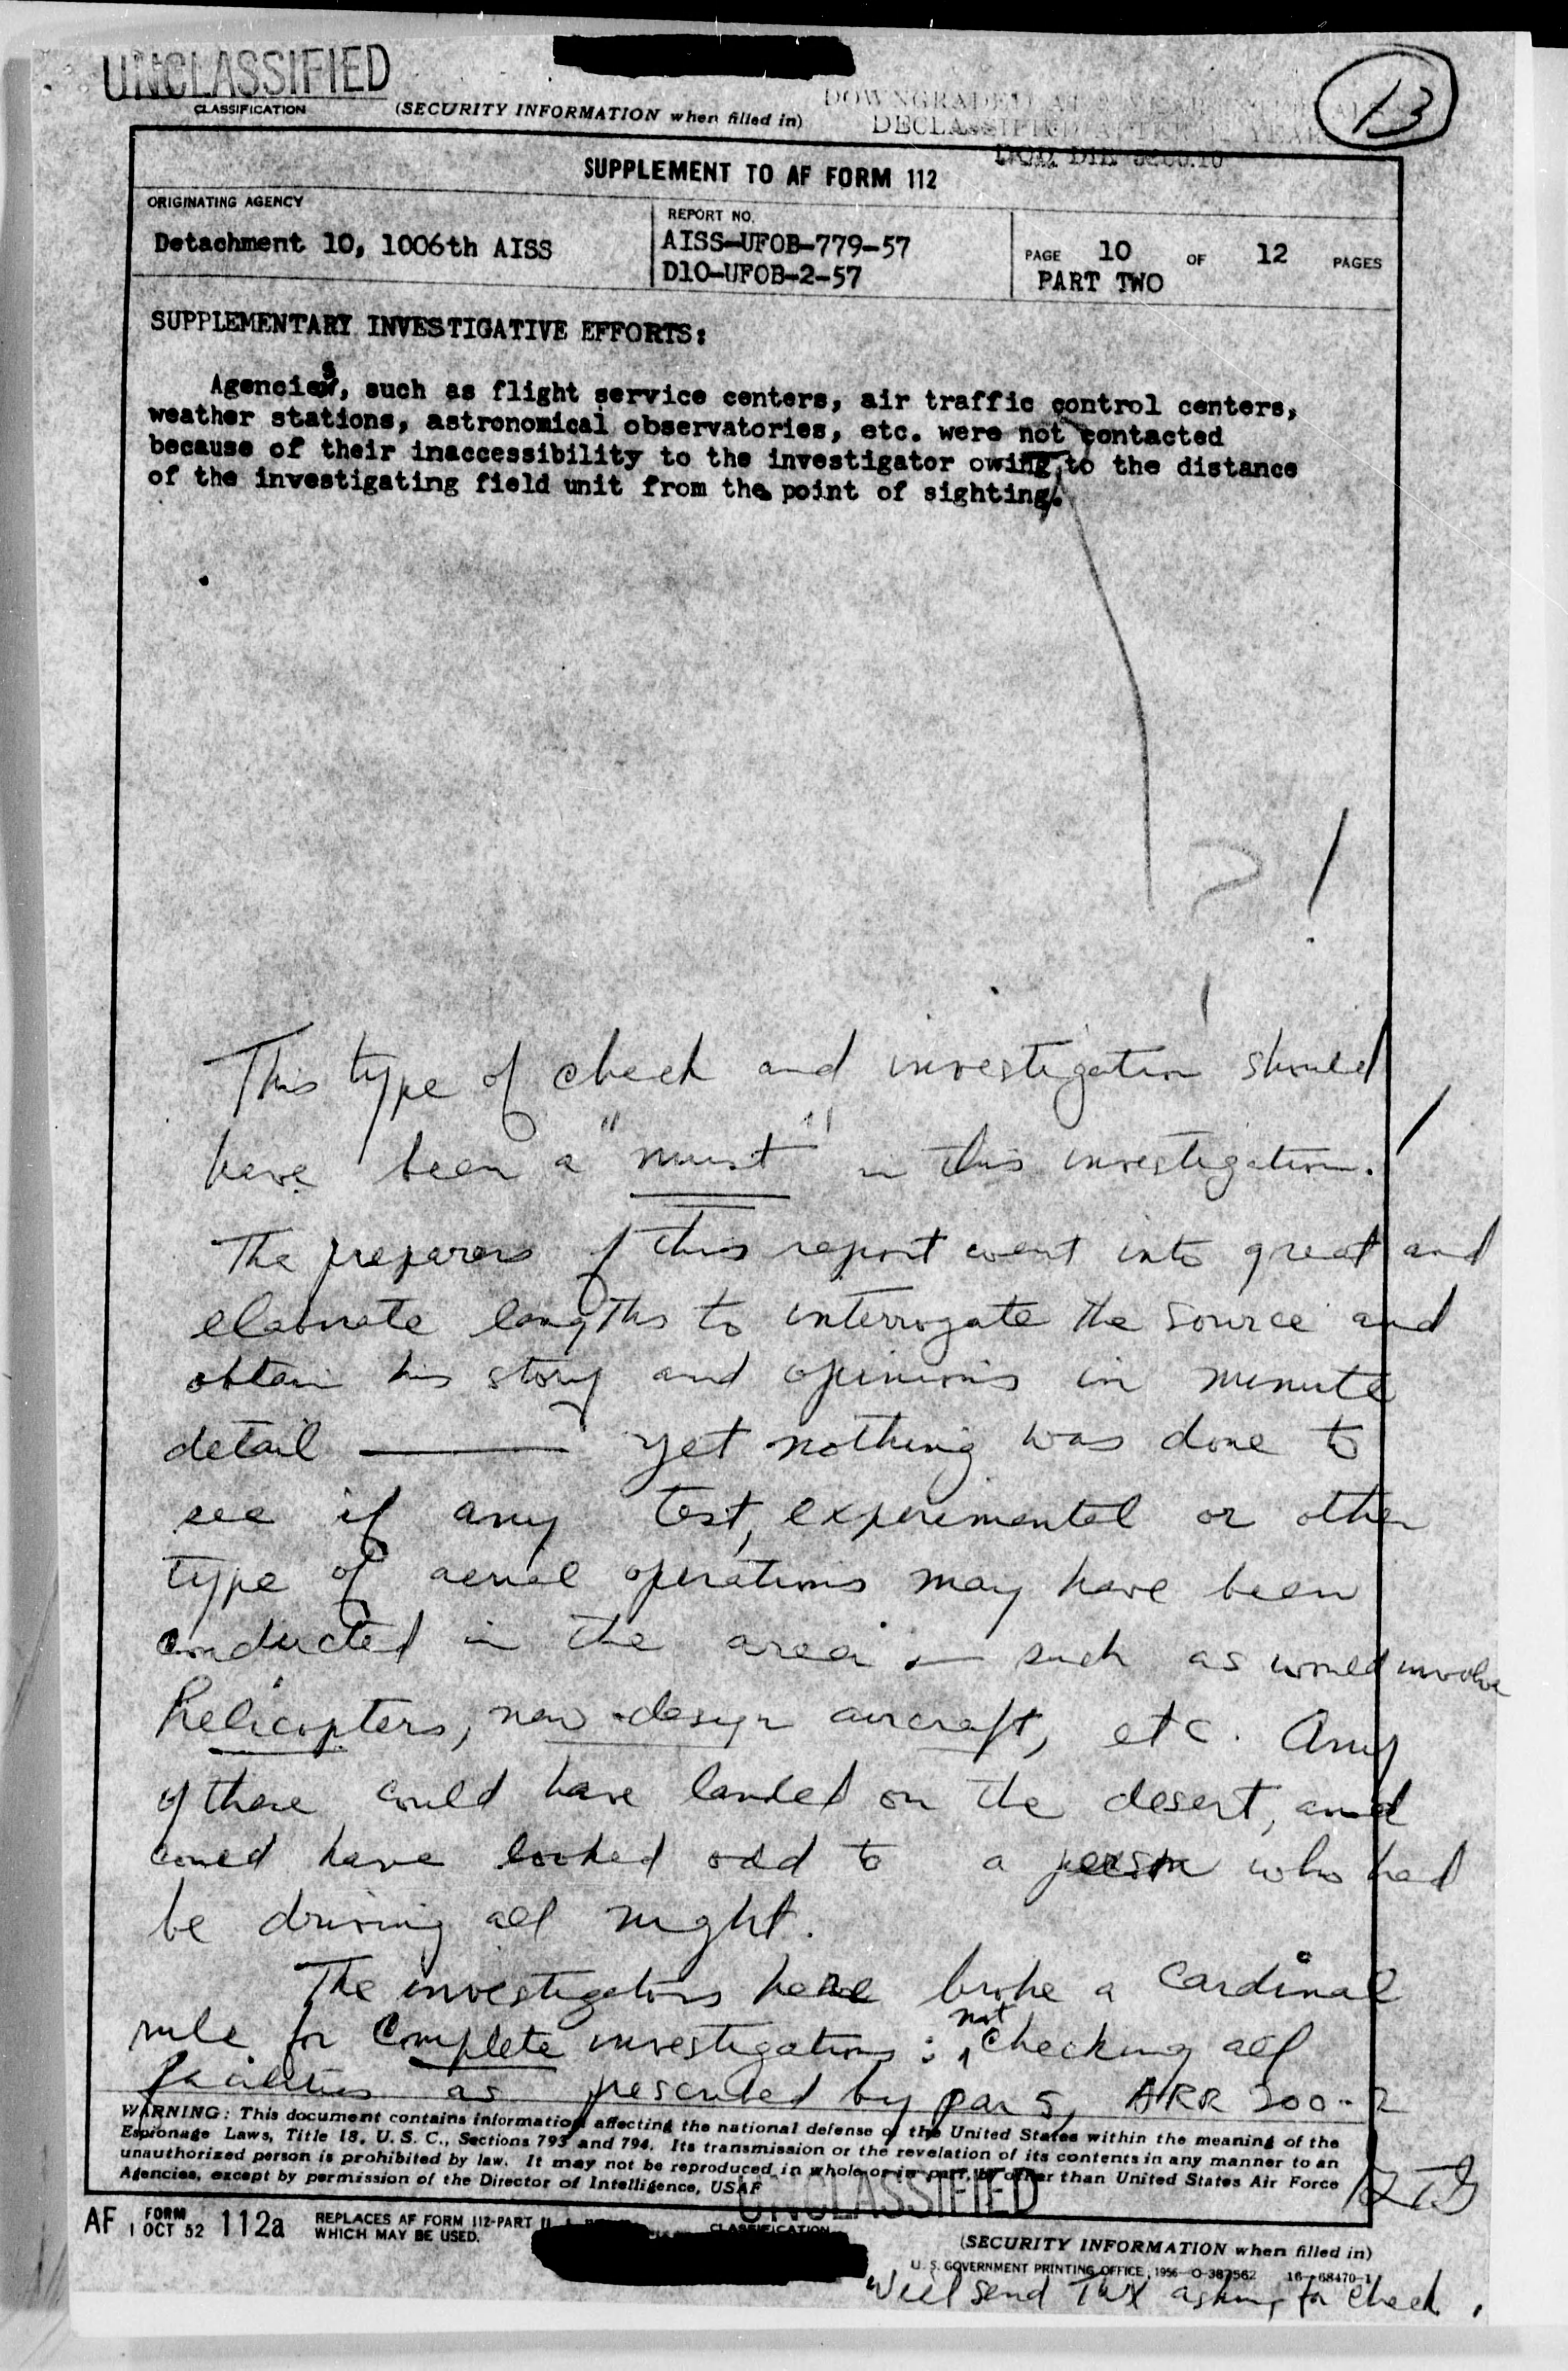 UNCLASSIFIED
CLASSIFICATION
(SECURITY INFORMATION when filled in)
DOWNGRADED AT
DECLASSIFIED AFTER YEARS
DOD DIR 5200.10
13
SUPPLEMENT TO AF FORM 112
ORIGINATING AGENCY
Detachment 10, 1006th AISS
REPORT NO.
AISS-UFOB-779-57
D10-UFOB-2-57
PAGE 10 OF 12 PAGES
PART TWO
SUPPLEMENTARY INVESTIGATIVE EFFORTS:
Agencies, such as flight service centers, air traffic control centers,
weather stations, astronomical observatories, etc. were not contacted
because of their inaccessibility to the investigator owing to the distance
of the investigating field unit from the point of sighting.
? !
This type of check and investigation should
have been a "must" in this investigation. !
The preparers of this report went into great and
elaborate lengths to interrogate the source and
obtain his story and opinions in minute
detail — yet nothing was done to
see if any test, experimental or other
type of aerial operations may have been
conducted in the area — such as would involve
helicopters, new-design aircraft, etc. Any
of these could have landed on the desert, and
could have looked odd to a person who had
be driving all night.
The investigators here broke a cardinal
rule for complete investigations: not checking all
facilities as prescribed by par 5, ARR 200-2
WARNING: This document contains information affecting the national defense of the United States within the meaning of the
Espionage Laws, Title 18, U. S. C., Sections 793 and 794. Its transmission or the revelation of its contents in any manner to an
unauthorized person is prohibited by law. It may not be reproduced in whole or in part, by other than United States Air Force
Agencies, except by permission of the Director of Intelligence, USAF
UNCLASSIFIED
CLASSIFICATION
AF FORM 1 OCT 52 112a
REPLACES AF FORM 112-PART II
WHICH MAY BE USED.
(SECURITY INFORMATION when filled in)
U. S. GOVERNMENT PRINTING OFFICE, 1956-O-387562 16-68470-1
Will send TWX asking for check.